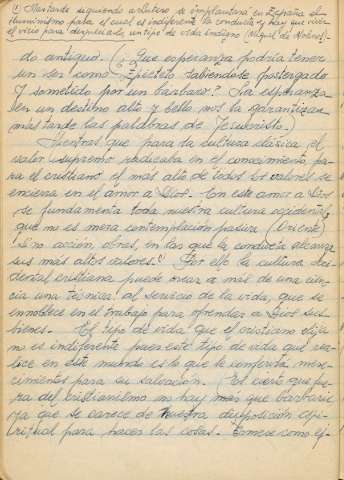 (1) Mas tarde siguiendo arbitrio se implantaria en España el
iluminismo para el cual es indiferente la conducta y hay que vivir
el vicio para despues un tipo de vida indigno (Miguel de Molinos).-
do antiguo. (¿Que esperanza podria tener
un ser como Epicteto sabiendose postergado
y sometido por un barbaro? La esperanza
en un destino alto y bello nos la garantizan
mas tarde las palabras de Jesucristo.)
Mientras que para la cultura clásica el
valor supremo radicaba en el conocimiento, pa-
ra el cristiano el mas alto de todos los valores se
encierra en el amor a Dios. Con este amor a Dios
se fundamenta toda nuestra cultura occidental
que no es mera contemplación pasiva (Oriente)
sino acción, obras, en las que la conducta alcanza
sus más altos valores.(1) Por ello la cultura occi-
dental cristiana puede crear a más de una cien-
cia una técnica al servicio de la vida, que se
ennoblece en el trabajo para ofrendar a Dios sus
bienes. El tipo de vida que el cristiano elija
no es indiferente pues este tipo de vida que rea-
lice en este mundo es lo que le conferirá mere-
cimientos para su salvación. Es cierto que fue-
ra del cristianismo no hay más que barbarie
ya que se carece de nuestra disposición espi-
ritual para hacer las cosas. Tómese como ej-